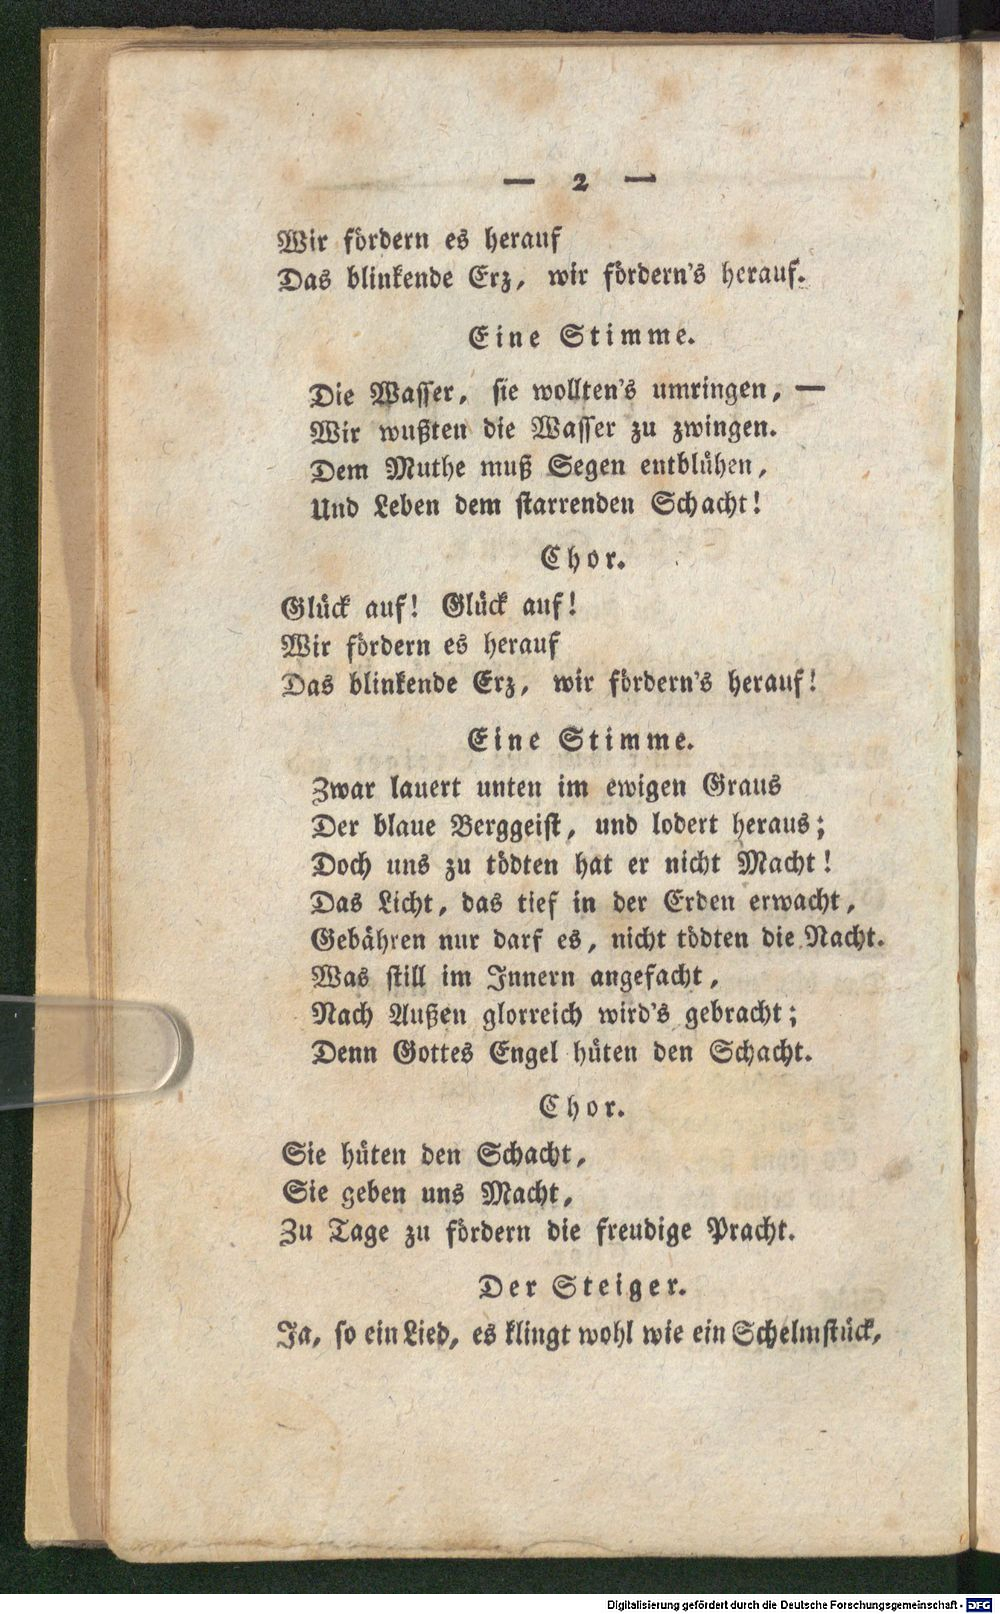 — 2 —
Wir fördern es herauf
Das blinkende Erz, wir fördern's herauf.
Eine Stimme.
Die Wasser, sie wollten's umringen, —
Wir wußten die Wasser zu zwingen.
Dem Muthe muß Segen entblühen,
Und Leben dem starrenden Schacht!
Chor.
Glück auf! Glück auf!
Wir fördern es herauf
Das blinkende Erz, wir fördern's herauf!
Eine Stimme.
Zwar lauert unten im ewigen Graus
Der blaue Berggeist, und lodert heraus;
Doch uns zu tödten hat er nicht Macht!
Das Licht, das tief in der Erden erwacht,
Gebähren nur darf es, nicht tödten die Nacht.
Was still im Innern angefacht,
Nach Außen glorreich wird's gebracht;
Denn Gottes Engel hüten den Schacht.
Chor.
Sie hüten den Schacht,
Sie geben uns Macht,
Zu Tage zu fördern die freudige Pracht.
Der Steiger.
Ja, so ein Lied, es klingt wohl wie ein Schelmstück,
Digitalisierung gefördert durch die Deutsche Forschungsgemeinschaft - DFG